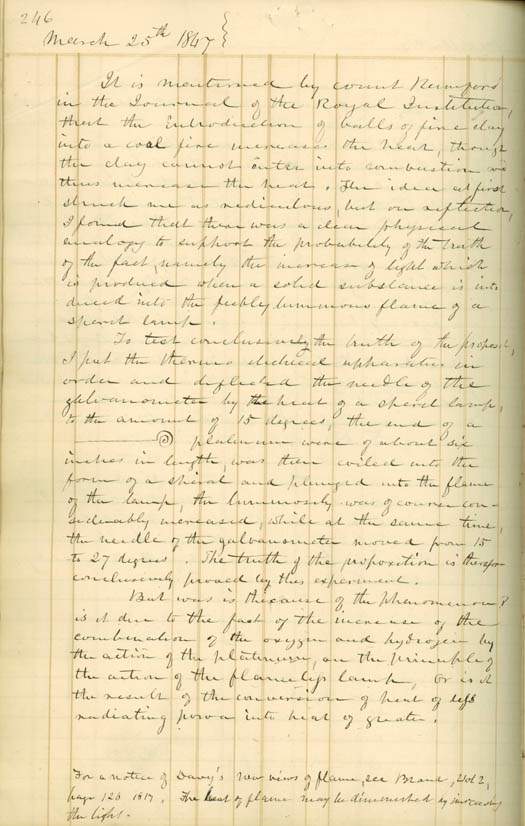 246
March 25th 1847
It is mentioned by count Rumford
in the Journal of the Royal Institution,
that the introduction of balls of fire clay
into a coal fire increases the heat, though
the clay cannot enter into combustion and
thus increase the heat. The idea at first
struck me as rediculous, but on reflection,
I found that there was a clear physical
analogy to support the probability of the truth
of the fact, namely the increase of light which
is produced when a solid substance is intro
duced into the feebly luminous flame of a
spirit lamp.
To test conclusively the truth of the proposit,
I put the thermo electrical apparatus in
order and deflected the needle of the
galvanometer by the heat of a spirit lamp,
to the amount of 15 degrees, the end of a
platinum wire of about six
inches in length, was then coiled into the
form of a spiral and plunged into the flame
of the lamp, the luminosity was of course con-
siderably increased, while at the same time,
the needle of the galvanometer moved from 15
to 27 degrees. The truth of the proposition is therefore
conclusively proved by this experiment.
But was is the cause of the phenomenon?
is it due to the fact of the increase of the
combination of the oxygen and hydrogen by
the action of the platinum, on the principle of
the action of the flameless lamp, or is it
the result of the conversion of heat of less
radiating power into heat of greater.
For a notice of Davy's new views of flame, see Brand, Vol 2,
page 126 1817. The heat of flame may be diminished by increasing
the light.